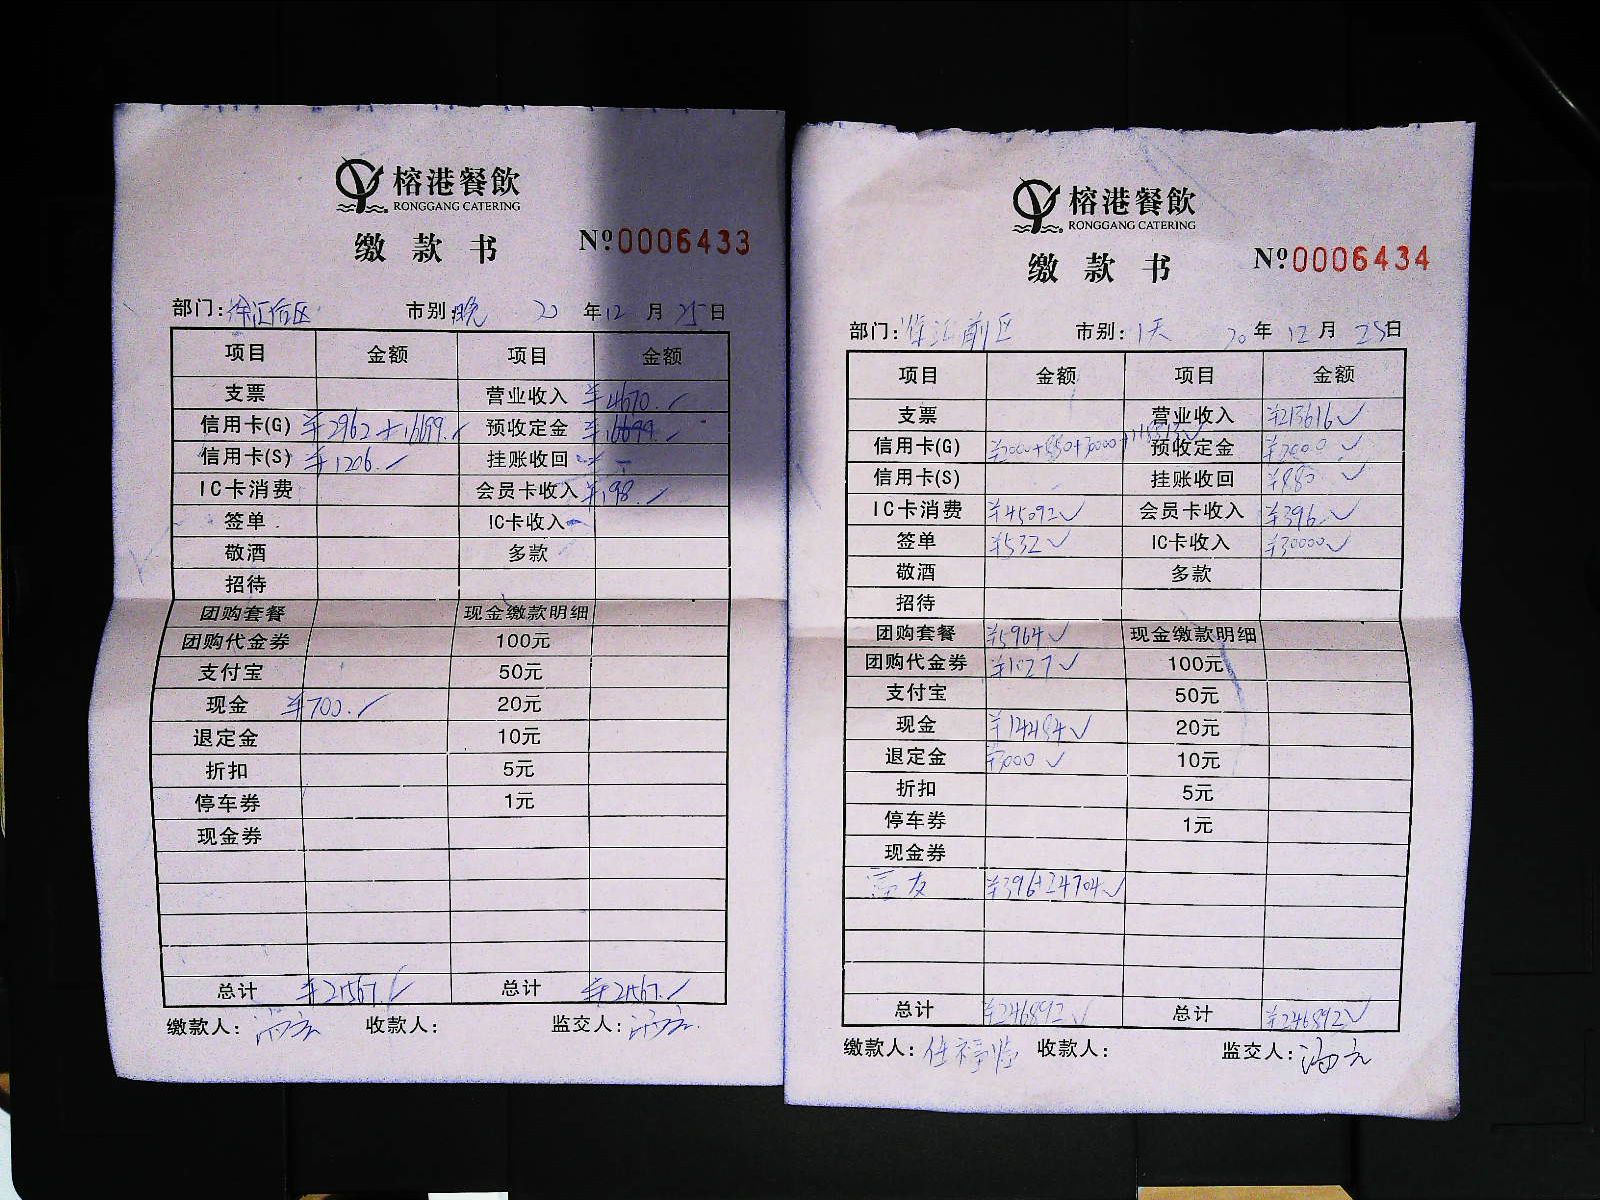 榕港餐飲
RONGGANG CATERING
缴款书 №0006433
部门:徐汇后区 市别:晚 20年12月25日
项目 金额 项目 金额
支票 营业收入 ¥4670.
信用卡(G) ¥2962+16699. 预收定金 ¥16699.
信用卡(S) ¥1206. 挂账收回
IC卡消费 会员卡收入 ¥198.
签单 IC卡收入
敬酒 多款
招待
团购套餐 现金缴款明细
团购代金券 100元
支付宝 50元
现金 ¥700. 20元
退定金 10元
折扣 5元
停车券 1元
现金券
总计 ¥21567. 总计 ¥21567.
缴款人: 收款人: 监交人:
榕港餐飲
RONGGANG CATERING
缴款书 №0006434
部门:徐汇前区 市别:1天 20年12月25日
项目 金额 项目 金额
支票 营业收入 ¥213616
信用卡(G) 预收定金 ¥2000
信用卡(S) 挂账收回 ¥880
IC卡消费 ¥45092 会员卡收入 ¥396
签单 ¥532 IC卡收入 ¥30000
敬酒 多款
招待
团购套餐 ¥5964 现金缴款明细
团购代金券 ¥1027 100元
支付宝 50元
现金 ¥14484 20元
退定金 10元
折扣 5元
停车券 1元
现金券
¥396+24704
总计 ¥246892 总计 ¥246892
缴款人: 收款人: 监交人: